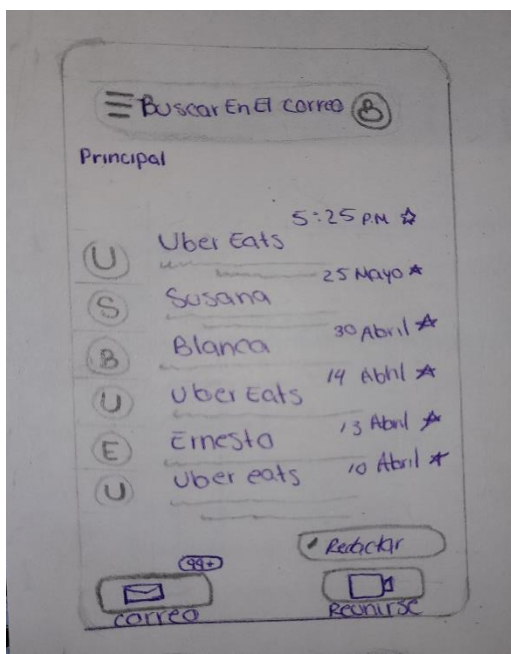 Buscar En El correo
Principal
5:25 P.M
U Uber Eats
25 Mayo
S Susana
30 Abril
B Blanca
14 Abril
U Uber Eats
13 Abril
E Ernesto
10 Abril
U Uber eats
Redactar
99+
correo
Reunirse